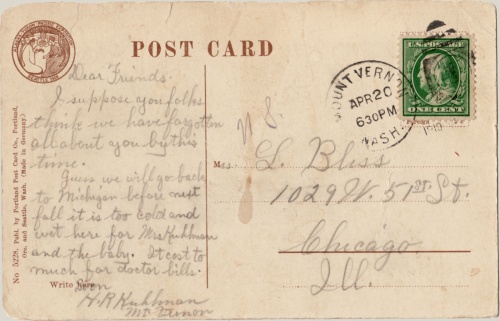 POST CARD
Dear Friends.
I suppose you folks
think we have forgotten
all about you by this
time.
Guess we will go back
to Michigan before next
fall it is too cold and
wet here for Mrs Kuhlman
and the baby. It cost to
much for doctor bills.
Write here
H.R Kuhlman
Mt Vernon
No 5228. Publ. by Portland Post Card Co., Portland,
Ore. and Seattle, Wash. (Made in Germany.)
MOUNT VERNON
APR 20
630 PM
WASH.
U.S. POSTAGE
ONE CENT
Mrs L. Bliss
1029 W. 51st St.
Chicago
Ill.